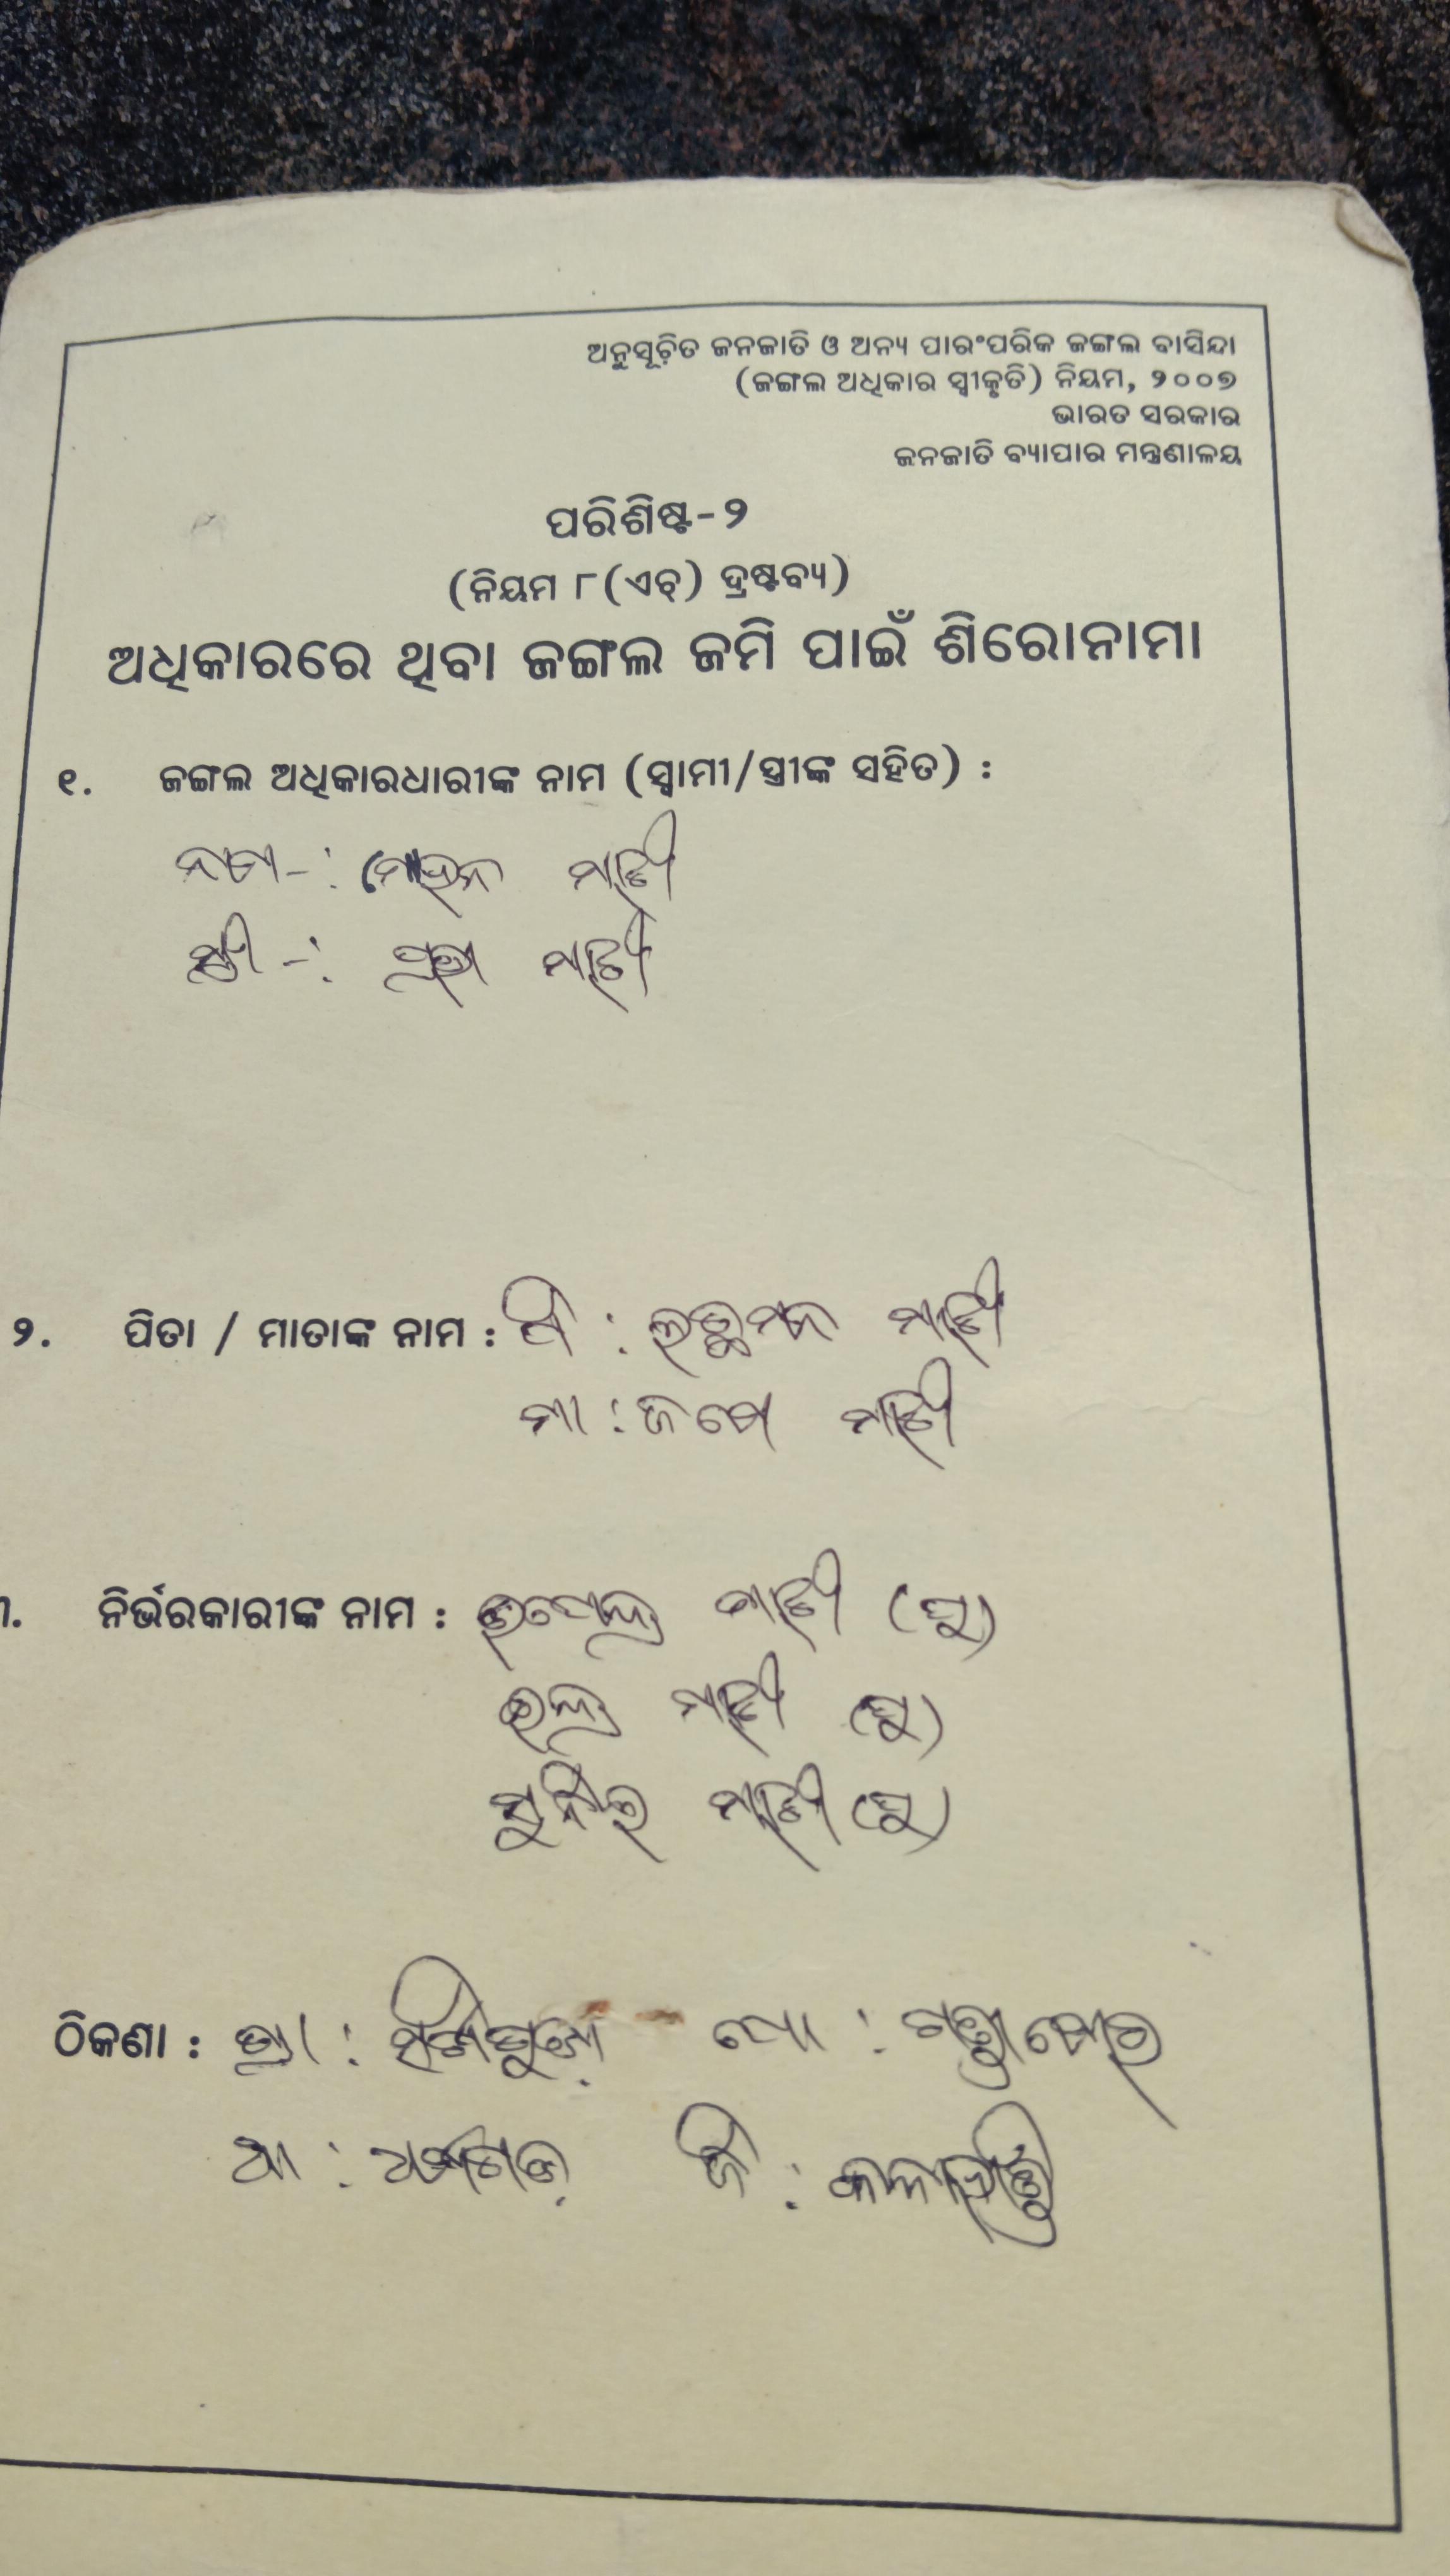 ଅନୁସୂଚିତ ଜନଜାତି ଓ ଅନ୍ୟ ପାରଂପରିକ ଜଙ୍ଗଲ ବାସିନ୍ଦା
(ଜଙ୍ଗଲ ଅଧିକାର ସ୍ୱୀକୃତି) ନିୟମ, ୨୦୦୭
ଭାରତ ସରକାର
ଜନଜାତି ବ୍ୟାପାର ମନ୍ତ୍ରଣାଳୟ
ପରିଶିଷ୍ଟ-୨
(ନିୟମ ୮(ଏଚ୍) ଦ୍ରଷ୍ଟବ୍ୟ)
ଅଧିକାରରେ ଥିବା ଜଙ୍ଗଲ ଜମି ପାଇଁ ଶିରୋନାମା
୧. ଜଙ୍ଗଲ ଅଧିକାରଧାରୀଙ୍କ ନାମ (ସ୍ୱାମୀ/ସ୍ତ୍ରୀଙ୍କ ସହିତ) :
ନାମ-: ମୋହନ ମାଝୀ
ସ୍ତ୍ରୀ-: ମାଝୀ
୨. ପିତା / ମାତାଙ୍କ ନାମ : ପି : ଲଛମନ ମାଝୀ
ମା : ମାଝୀ
ନିର୍ଭରକାରୀଙ୍କ ନାମ : ମାଝୀ (ପୁ)
ମାଝୀ (ପୁ)
ମାଝୀ (ପୁ)
ଠିକଣା : ଗ୍ରା : ପୋ :
ଥା : ଧର୍ମଗଡ଼ ଜି : କଳାହାଣ୍ଡି